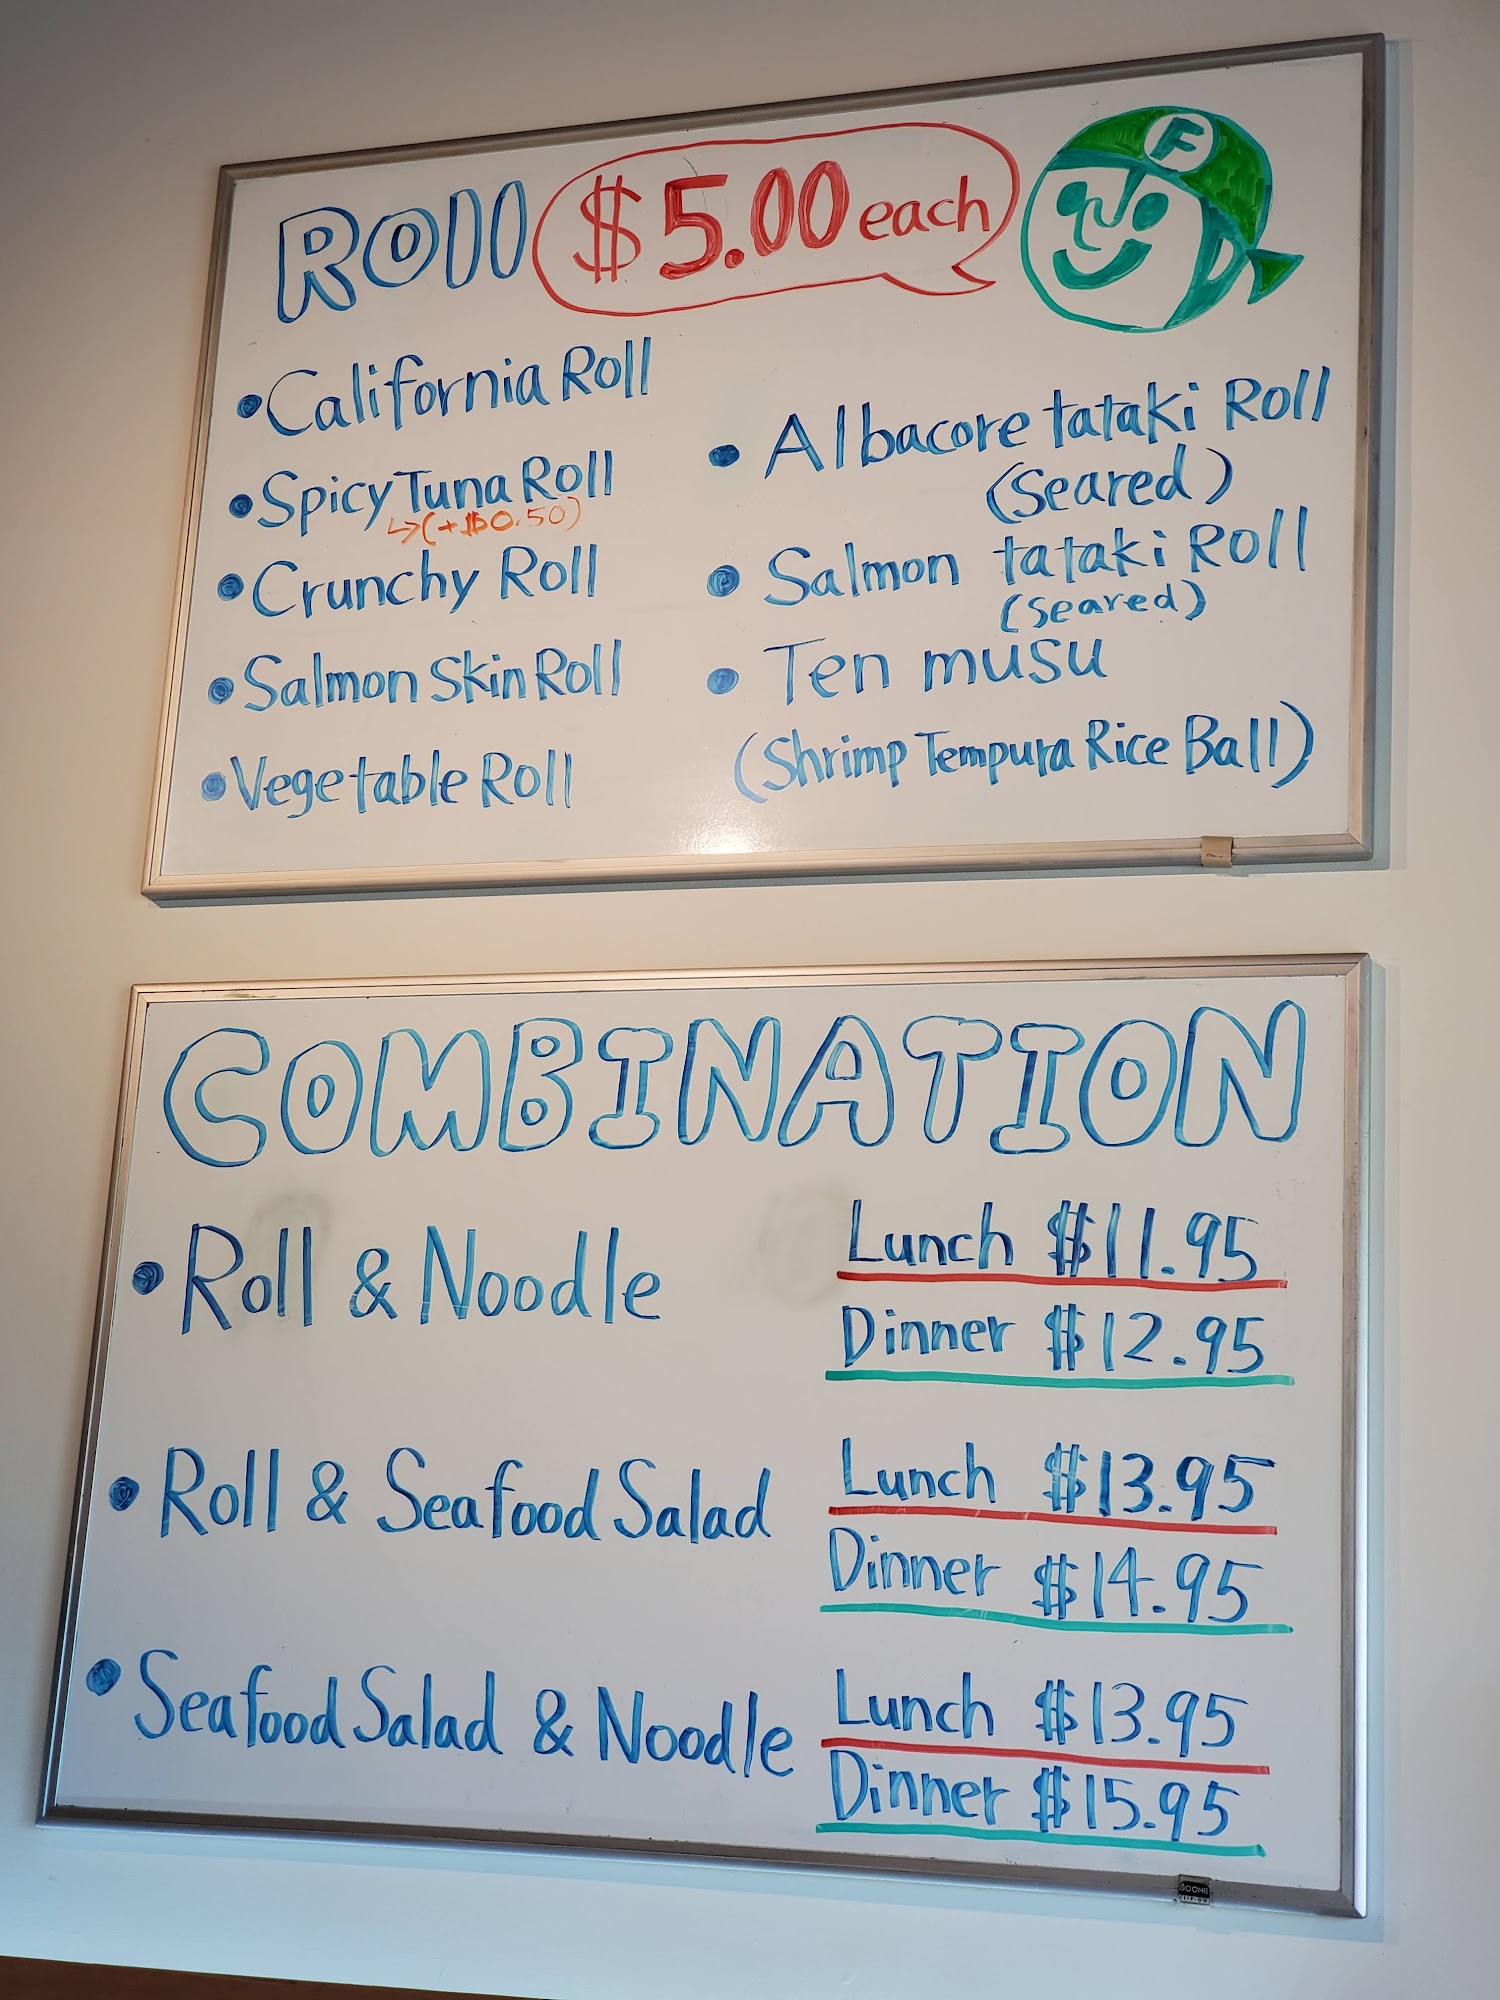 Roll $5.00 each
F
• California Roll
• Spicy Tuna Roll
↳(+$0.50)
• Crunchy Roll
• Salmon Skin Roll
• Vegetable Roll
• Albacore tataki Roll
(Seared)
• Salmon tataki Roll
(Seared)
• Ten musu
(Shrimp Tempura Rice Ball)
COMBINATION
• Roll & Noodle
Lunch $11.95
Dinner $12.95
• Roll & Seafood Salad
Lunch $13.95
Dinner $14.95
• Seafood Salad & Noodle
Lunch $13.95
Dinner $15.95
BOONE